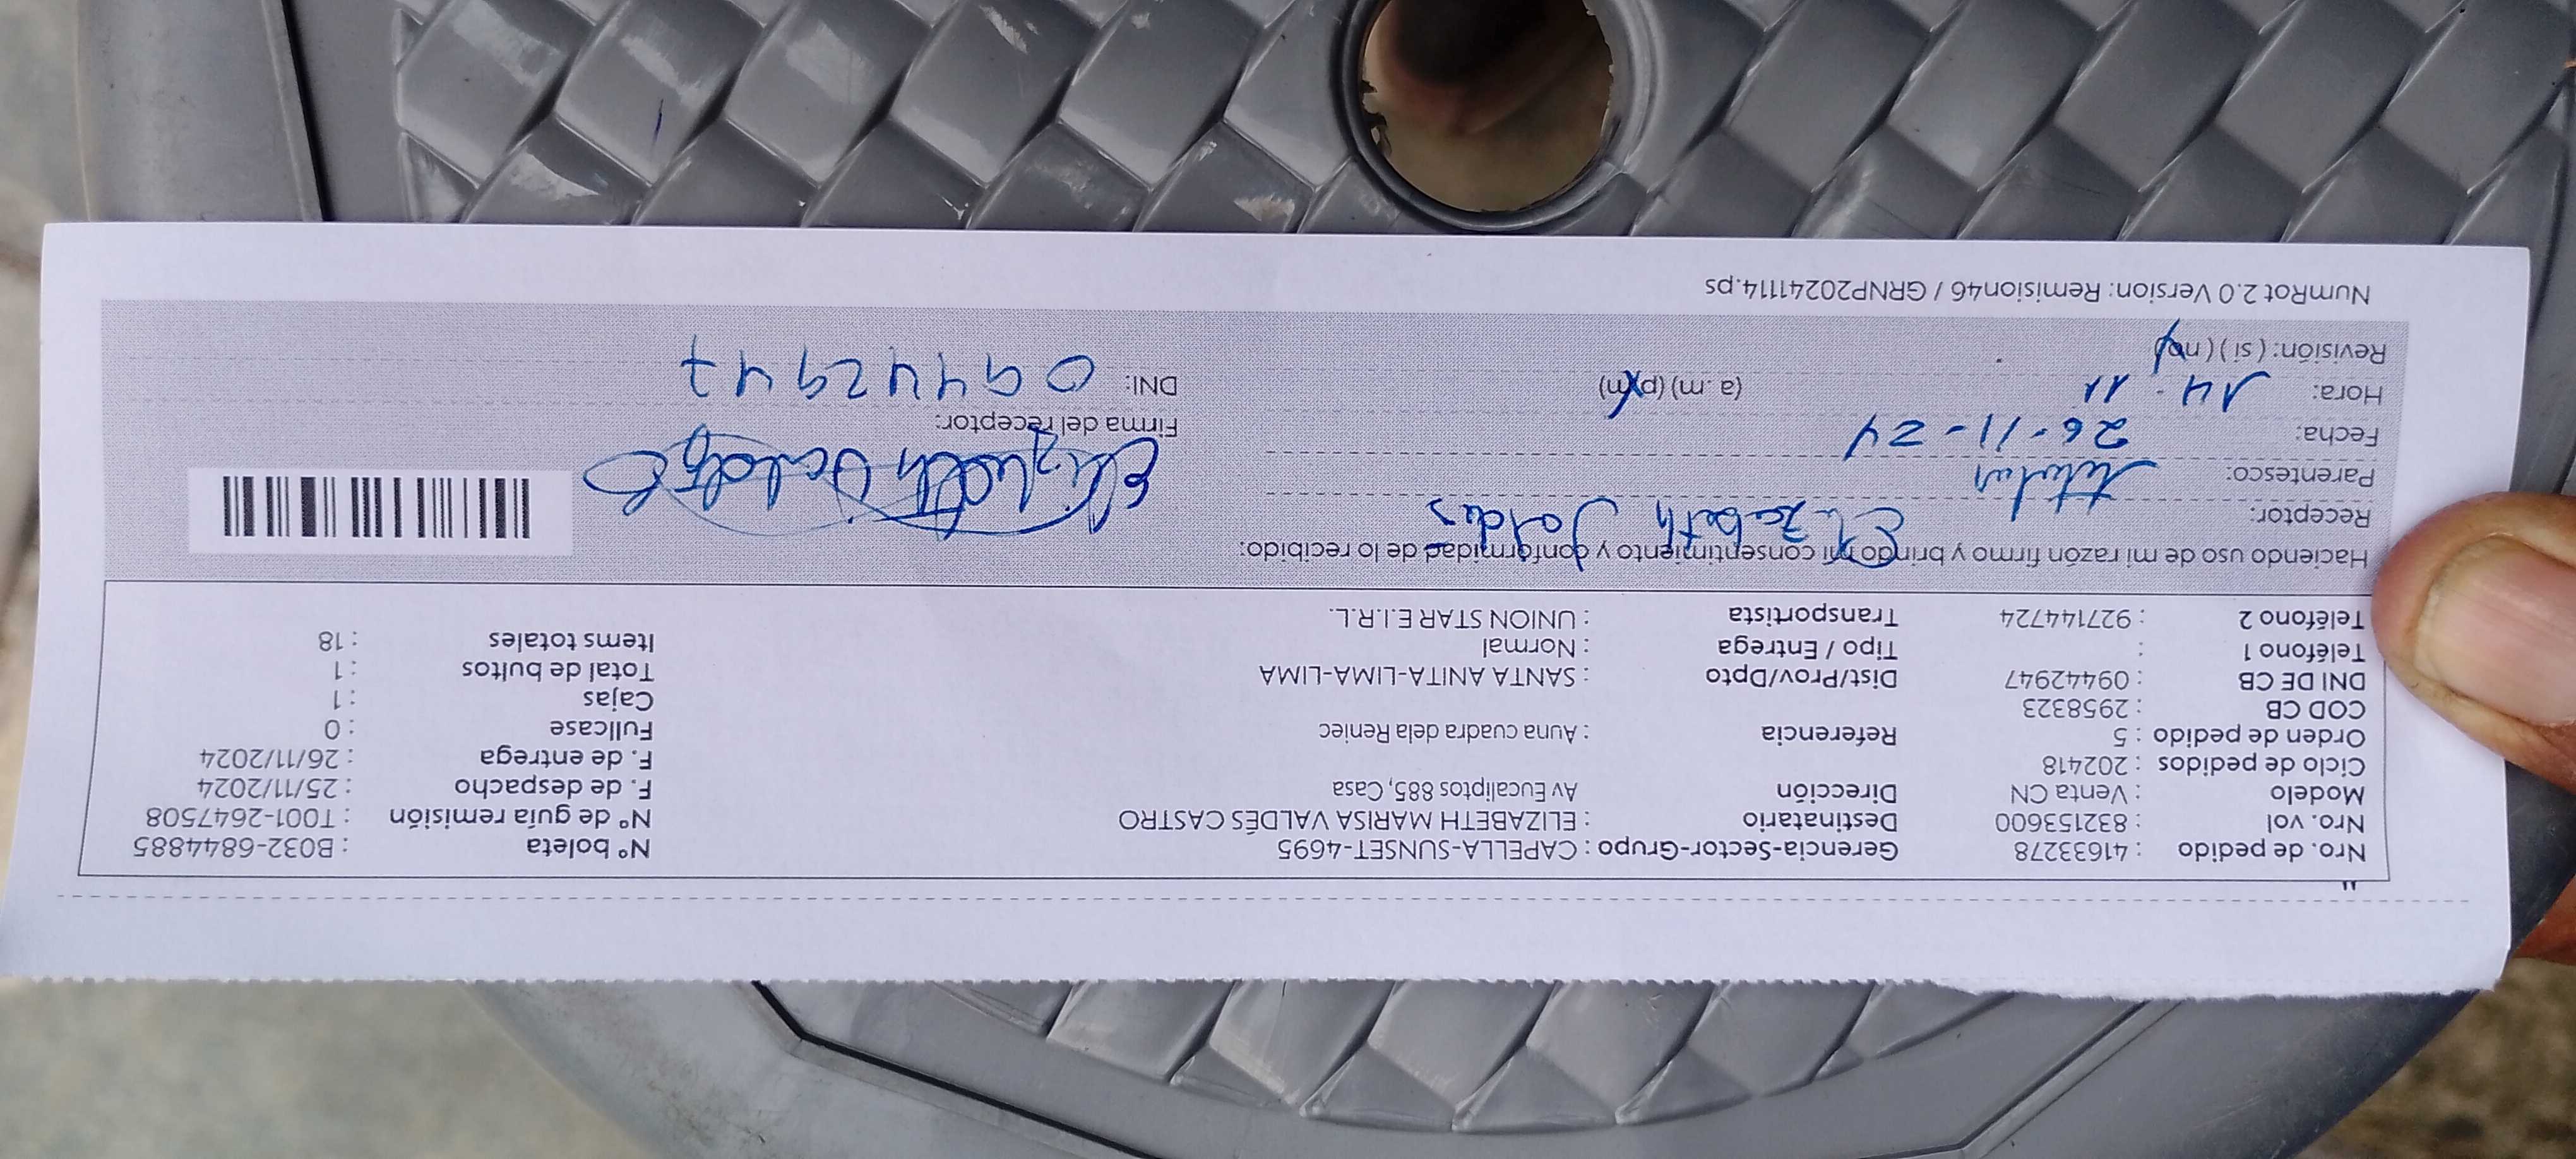 Nro. de pedido : 41633278 Gerencia-Sector-Grupo : CAPELLA-SUNSET-4695 N° boleta : B032-6844885
Nro. vol : 832153600 Destinatario : ELIZABETH MARISA VALDÉS CASTRO N° de guía remisión : T001-2647508
Modelo : Venta CN Dirección Av Eucaliptos 885, Casa F. de despacho : 25/11/2024
Ciclo de pedidos : 202418 F. de entrega : 26/11/2024
Orden de pedido : 5 Referencia : Auna cuadra dela Reniec Fullcase : 0
COD CB : 2958323 Cajas : 1
DNI DE CB : 09442947 Dist/Prov/Dpto : SANTA ANITA-LIMA-LIMA Total de bultos : 1
Teléfono 1 : Tipo / Entrega : Normal Items totales : 18
Teléfono 2 : 927144724 Transportista : UNION STAR E.I.R.L.
Haciendo uso de mi razón firmo y brindo mi consentimiento y conformidad de lo recibido:
Receptor: Elizabeth
Parentesco: titular
Fecha: 26-11-24 Firma del receptor:
Hora: 14 11 (a. m) (p.m) DNI: 09442947
Revisión: ( si ) ( no )
NumRot 2.0 Version: Remision46 / GRNP20241114.ps